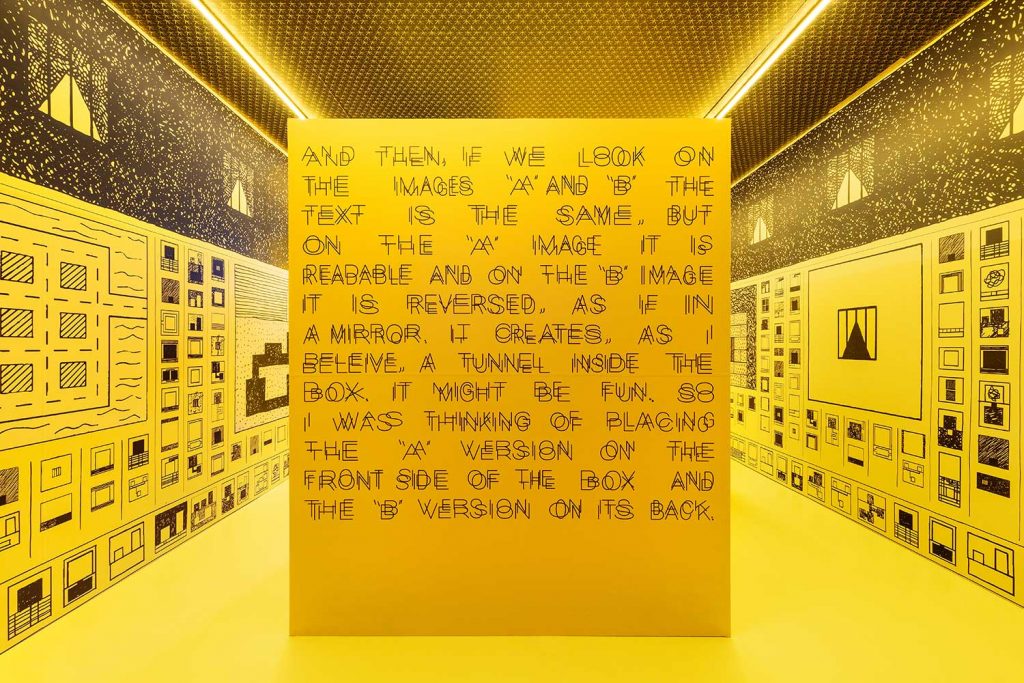 AND THEN, IF WE LOOK ON
THE IMAGES "A" AND "B" THE
TEXT IS THE SAME, BUT
ON THE "A" IMAGE IT IS
READABLE AND ON THE "B" IMAGE
IT IS REVERSED, AS IF IN
A MIRROR. IT CREATES, AS I
BELEIVE, A TUNNEL INSIDE THE
BOX. IT MIGHT BE FUN. SO
I WAS THINKING OF PLACING
THE "A" VERSION ON THE
FRONT SIDE OF THE BOX AND
THE "B" VERSION ON ITS BACK.